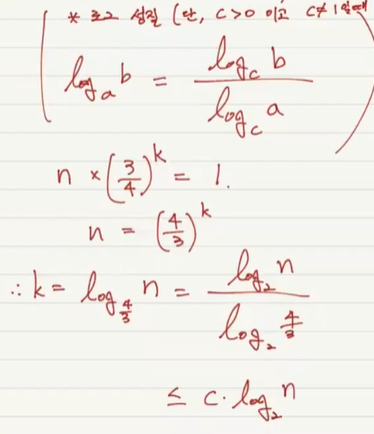 * 로그 성질 (단, C>0 이고 C≠1일때
log_a b = log_c b / log_c a
n × (3/4)^k = 1.
n = (4/3)^k
∴ k = log_{4/3} n = log_2 n / log_2 4/3
≤ C · log_2 n